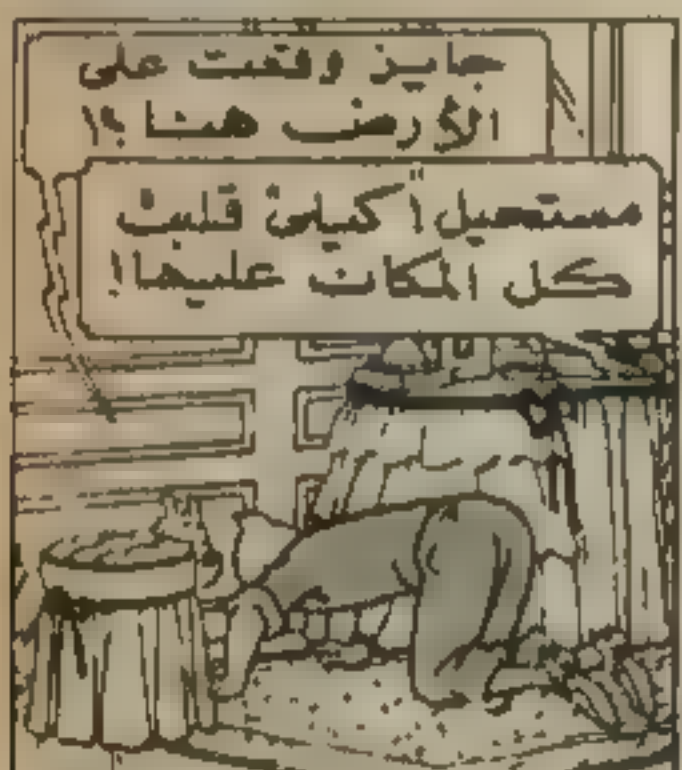 جايز وقعت على
الأرض هنا ؟!
مستحيل أكيلى قلبت
كل المكان عليها!